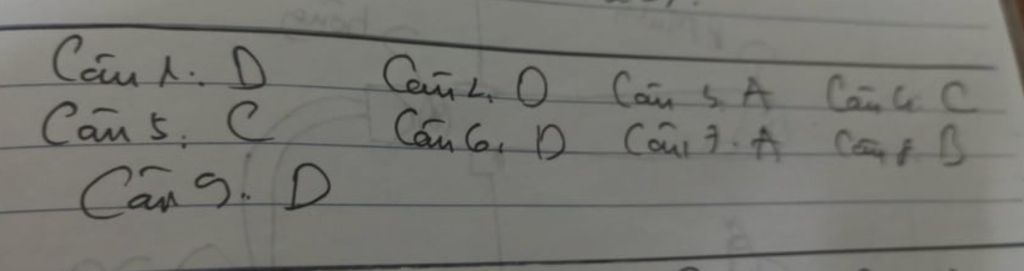 Câu 1. D Câu 2. D Câu 3. A Câu 4. C
Câu 5. C Câu 6. D Câu 7. A Câu 8 B
Câu 9. D